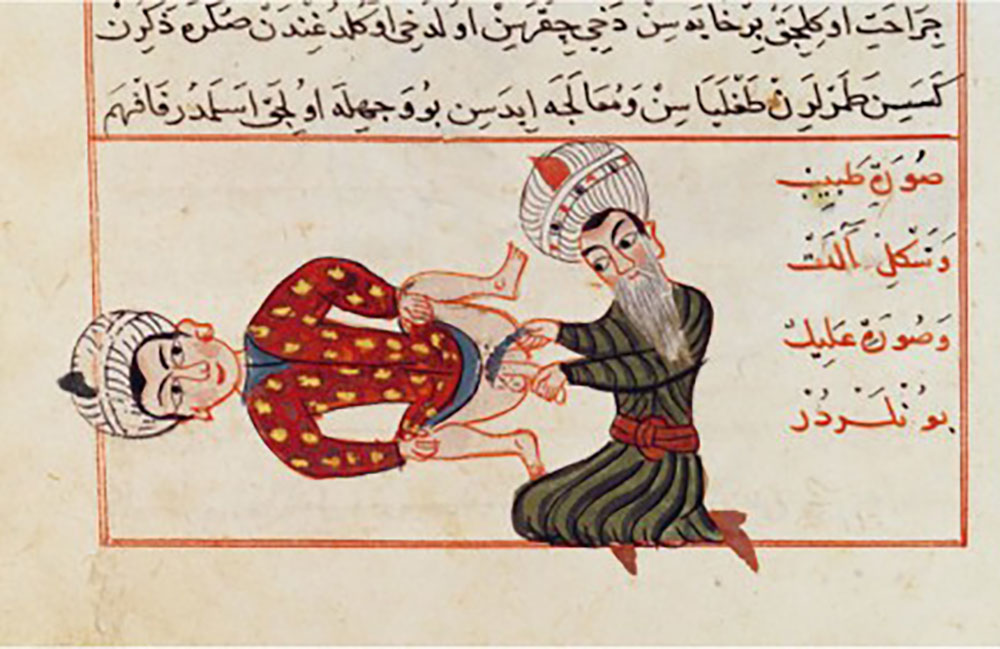 جراحت اوكلجق بر خايه سن دخي چقرسن اول دخي اوكلدغندن صكره ذكرن
كسسن طمرلرن طغلياسن ومعالجه ايدسن بو وجهله اولجق اسلمدر فافهم
صورة طبيب
وشكل آلت
وصورة عليل
بونلردر